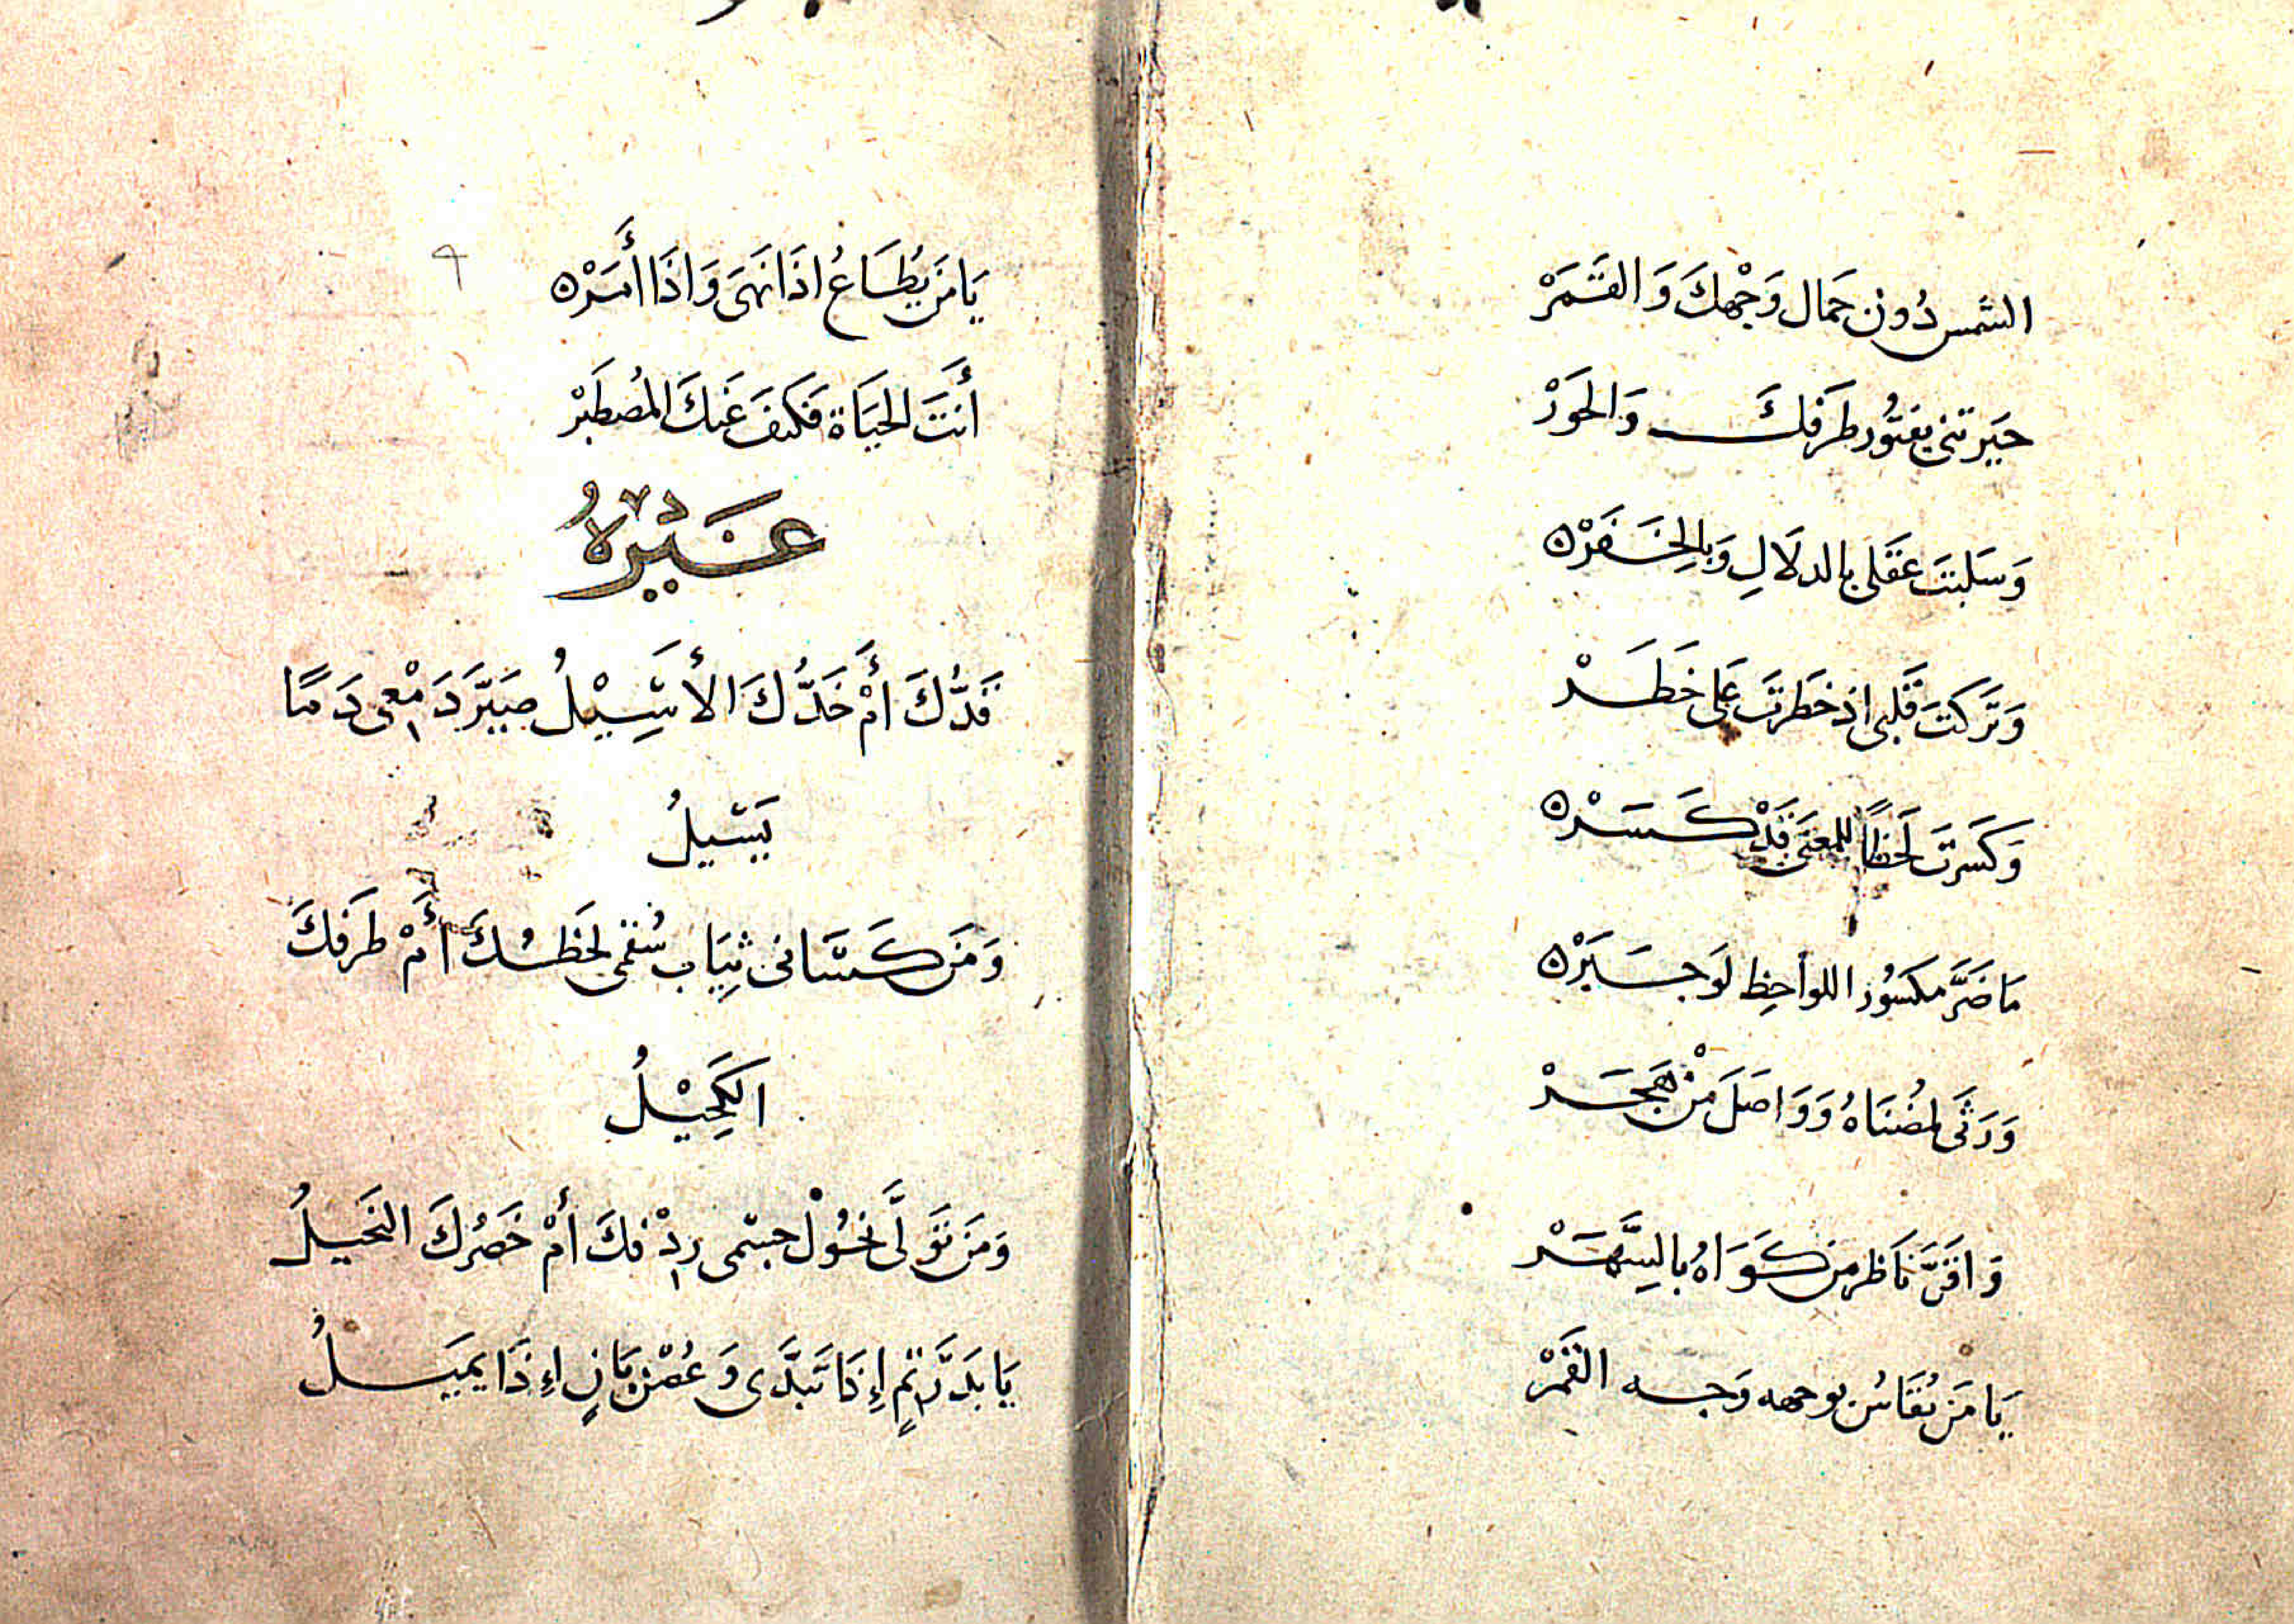 الشمس دُون جَمال وَجْهكَ وَالقَمَرْ
حيَرتنى بفتُور طَرَفكَ وَالحَوَرْ
وَسَلبتَ عَقَلى بالدلَالِ وَبالِخَفَرْه
وَتَركتَ قَلبى اذ خَطرتَ عَلى خَطَرْ
وَكَسَرتَ لَحَظاً للمعنى قَدْ كَسَرْه
مَا ضَرَّ مكسُور اللواحِظ لَو جَبَرْه
وَرَثَى لمُضنَاهُ وَوَاصَلَ مَنْ هَجَرْ
وَافَنَّ نَاظر مَن كَوَاهُ بالسَّهَرْ
يَا مَن يُقَاسُ بوجهه وَجه القَمَرْ
٩
يَا مَن يُطَاعُ اذَا نَهَى وَاذَا أَمَرْه
أَنتَ الحَيَاة فَكَيفَ عَنكَ المُصطَبَرْ
غَيْرُهُ
قَدُّكَ أَمْ خَدُّكَ الأَسِيْلُ صَيَّرَ دَمْعِى دَمًا
يَسْيلُ
وَمَن كَسَانى ثِيَاب سُقمى لحَظُكَ أَمْ طَرَفكَ
الكَحِيْلُ
وَمَن تَوَلَّى نحُوْل جسمى رِدْفكَ أَمْ خَصْرُكَ النَحَيلُ
يَا بَدَرَ تِمٍ إِذَا تَبَدَّى وَغُصْن بَانٍ اءِذَا يميَلُ